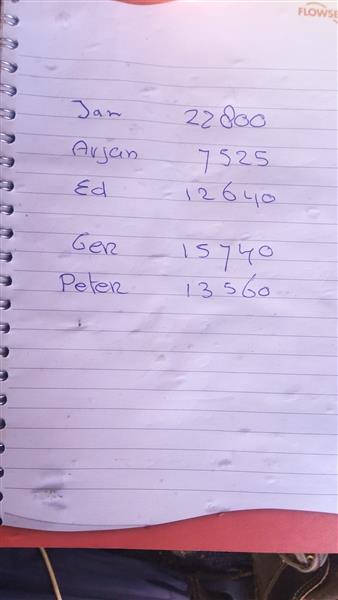 FLOWSE
Jan 22800
Arjan 7525
Ed 12640
Ger 15740
Peter 13560